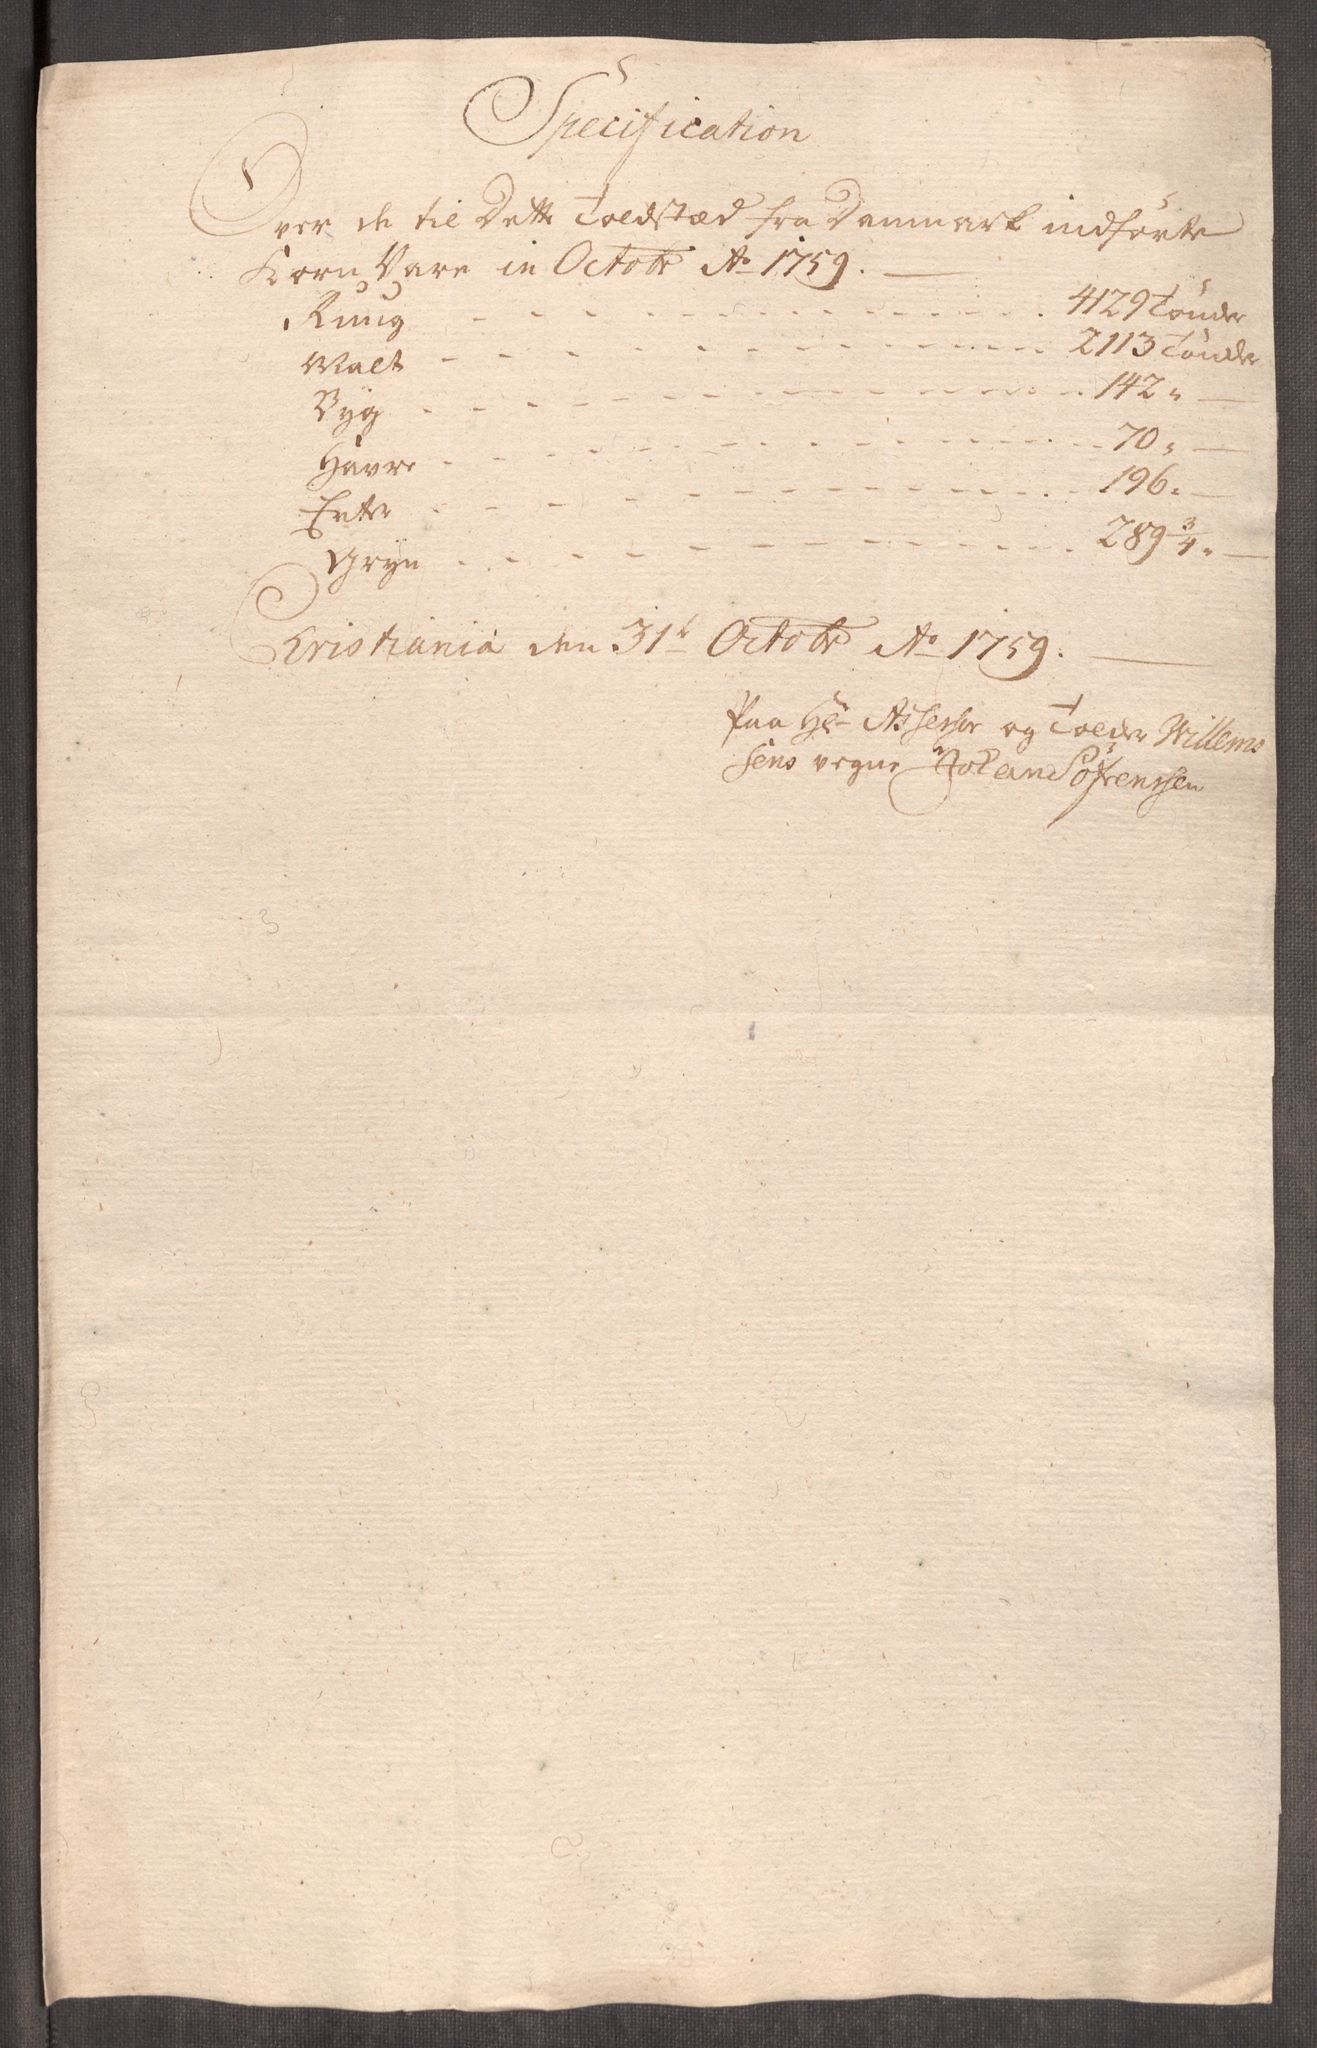 Specification
Over de til Dette Toldstæd fra Danmark indförte
Korn Vare in Octobr Ao 1759.
Ruug - - - 4129 Tönder
Malt - - - 2113 Tönder
Byg - - - 142 " —
Havre - - - 70 " —
Erter - - - 196 " —
Gryn - - - 289 3/4 " —
Christiania den 31t Octobr Ao 1759.
Paa Hr Assessor og Tolder Willem
sens vegne Johan Sörenssen